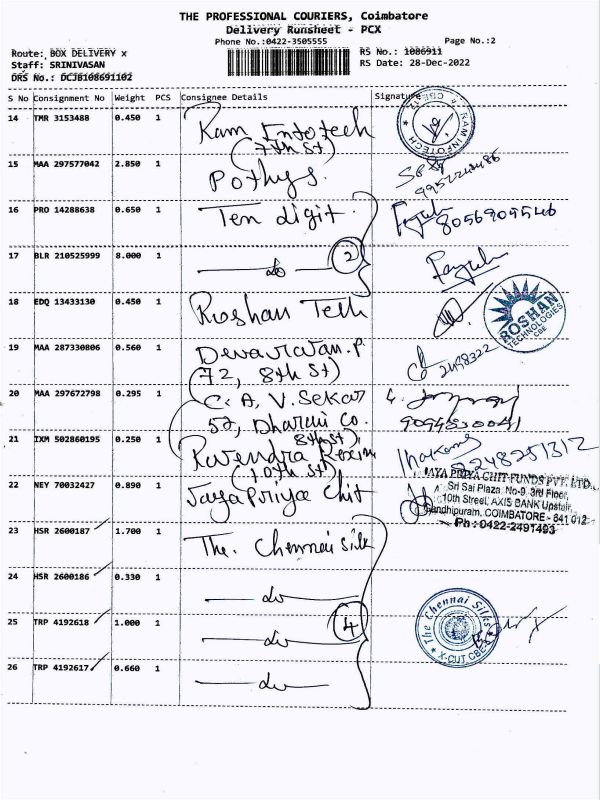 THE PROFESSIONAL COURIERS, Coimbatore
Delivery Runsheet - PCX
Phone No.:0422-3505555
Page No.:2
Route: BOX DELIVERY x
Staff: SRINIVASAN
DRS No.: DCJB108691102
RS No.: 1086911
RS Date: 28-Dec-2022
S No Consignment No Weight PCS Consignee Details Signature
14 TMR 3153488 0.450 1 Ram Infotech
(7th St)
RAM INFOTECH
15 MAA 297577042 2.850 1 Pothys.
16 PRO 14288638 0.650 1 Ten digit. 8056909546
17 BLR 210525999 8.000 1 do 2
18 EDQ 13433130 0.450 1 Roshan Tech
ROSHAN TECHNOLOGIES CBE
19 MAA 287330806 0.560 1 Devarajan.P 2498322
(72, 8th St)
20 MAA 297672798 0.295 1 C. A. V. Sekar
52, Dharani Co.
8th St)
21 IXM 502860195 0.250 1 Rajendra 2248251312
(10th St)
22 NEY 70032427 0.890 1 Jaya Priya Chit
JAYA PRIYA CHIT FUNDS PVT. LTD.,
Sri Sai Plaza, No-9, 3rd Floor,
10th Street, AXIS BANK Upstair,
Gandhipuram, COIMBATORE - 641 012
Ph : 0422-2491493
23 HSR 2600187 1.700 1 The. Chennai Silk
24 HSR 2600186 0.330 1 do
25 TRP 4192618 1.000 1 do 4
The Chennai Silks
X-CUT, CBE
26 TRP 4192617 0.660 1 do